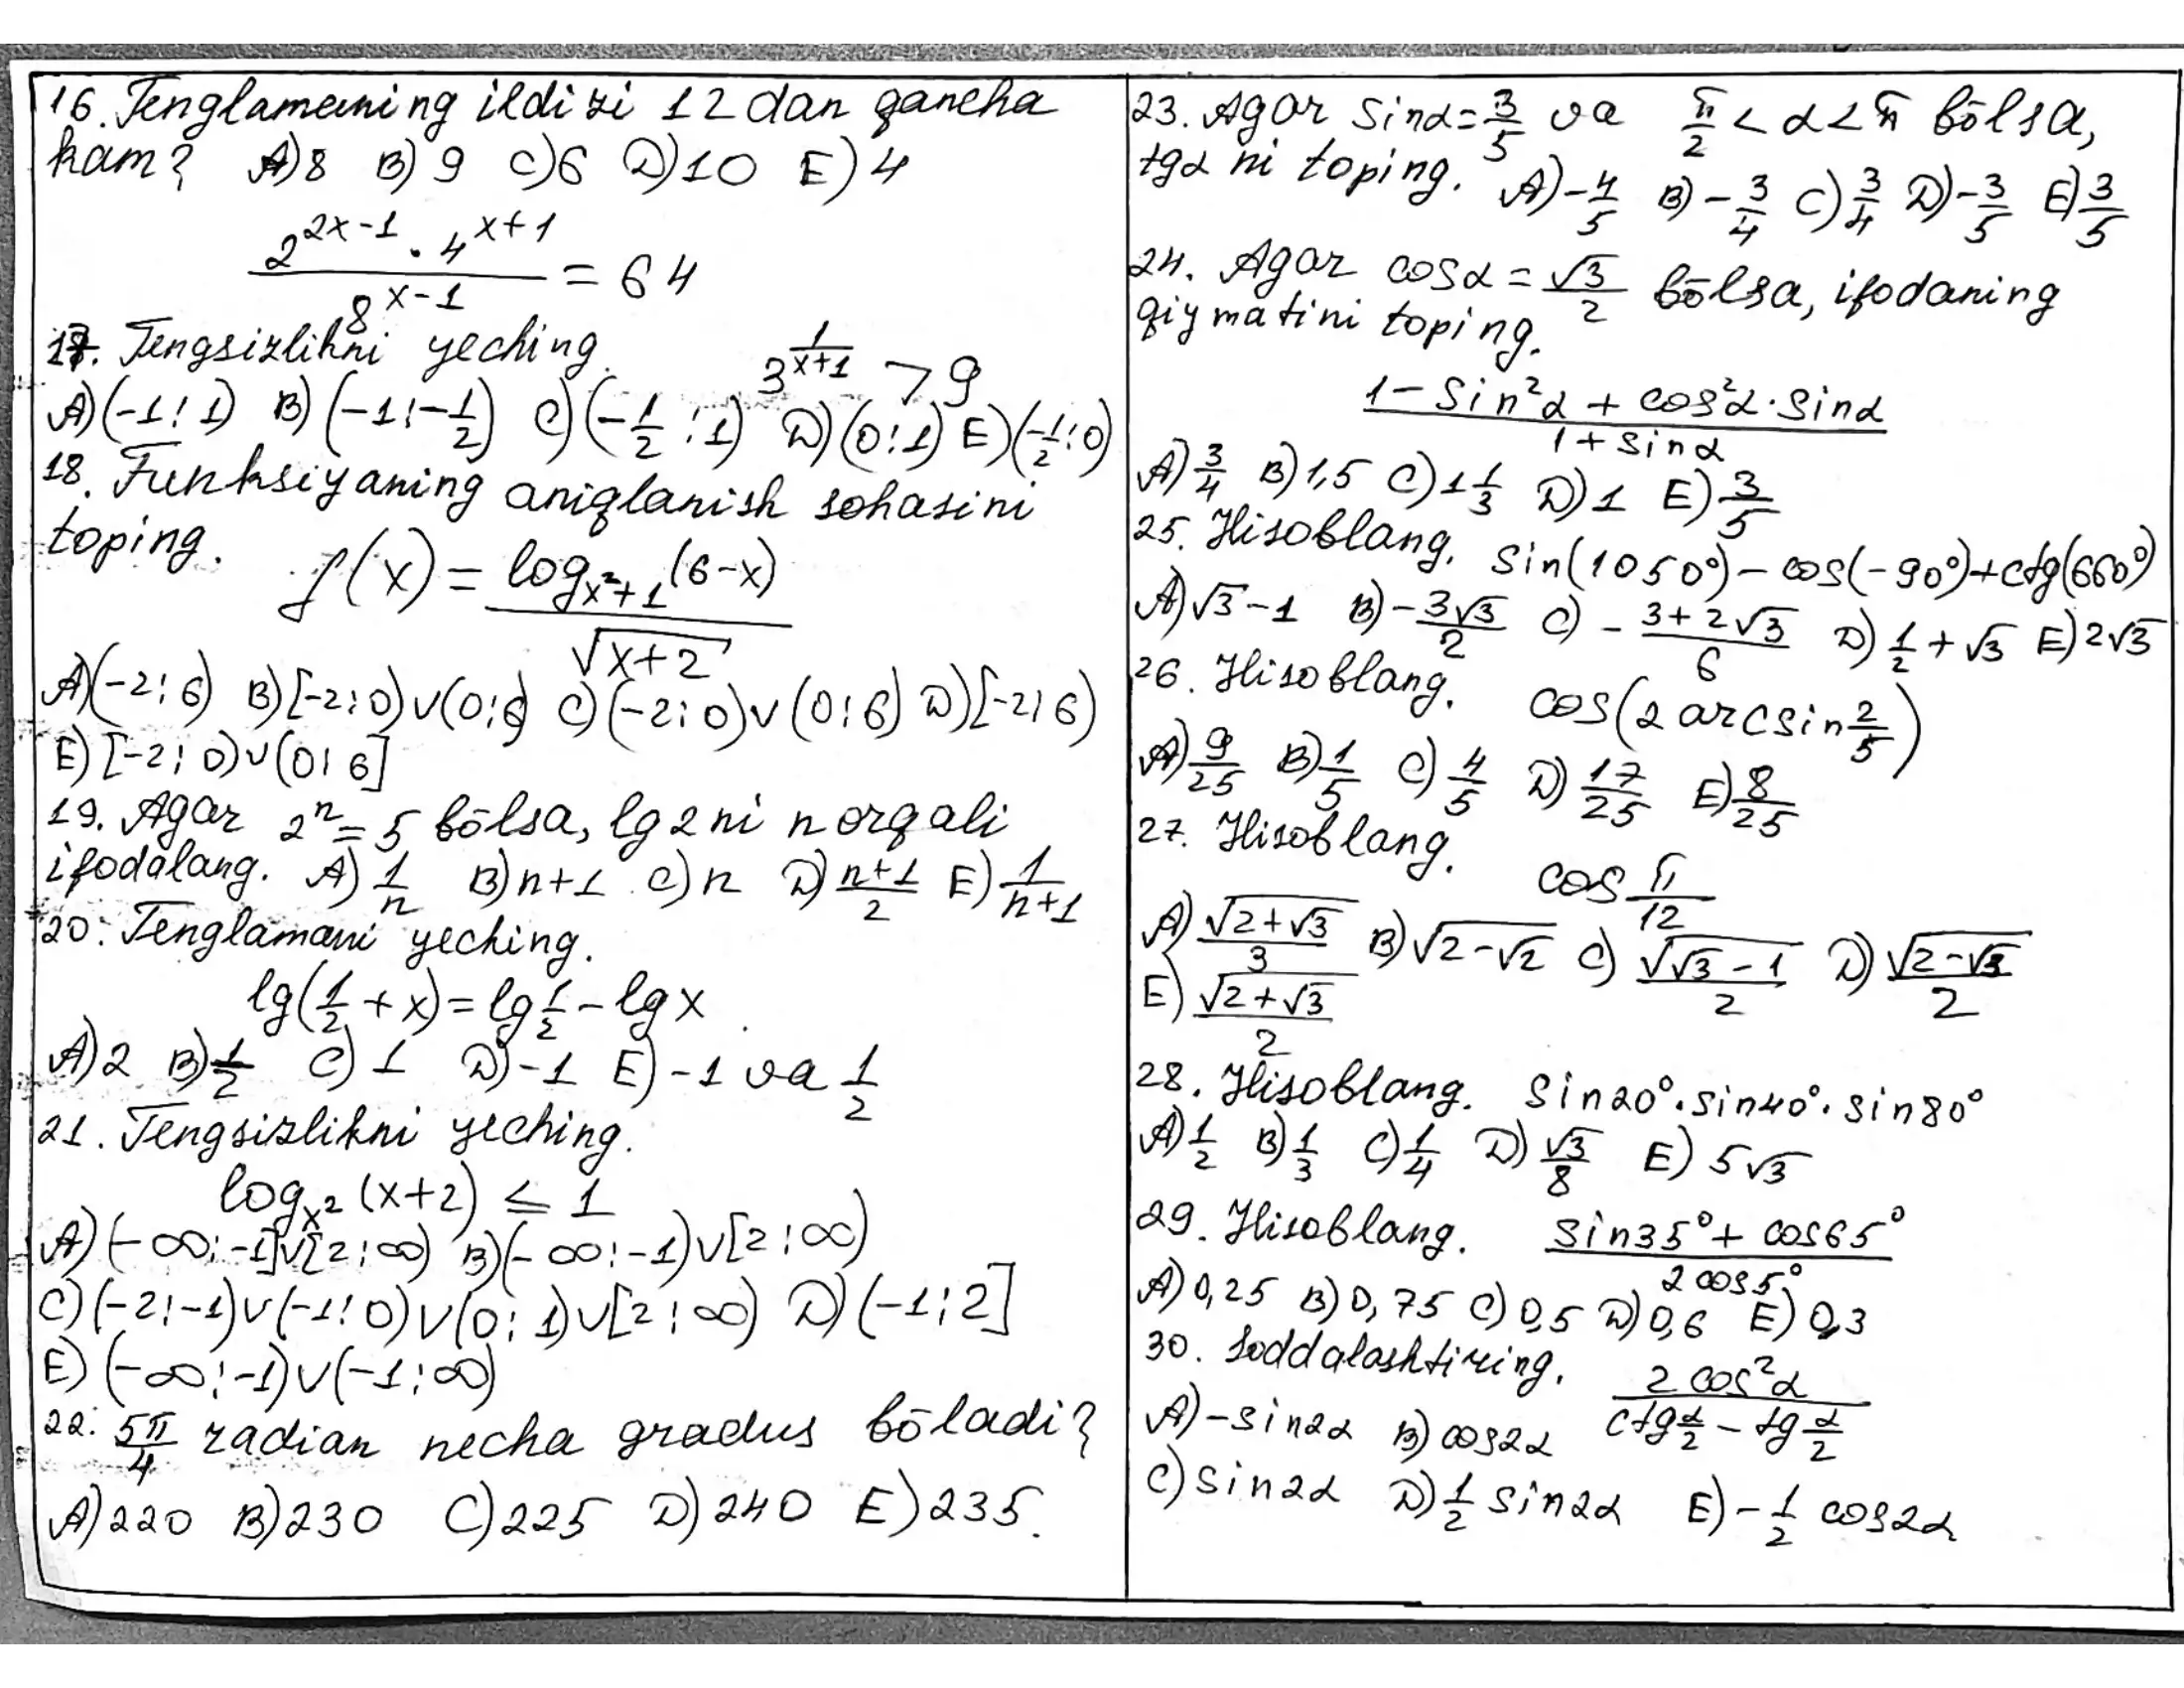 16. Tenglamaning ildizi 12 dan qancha
kam? A) 8 B) 9 C) 6 D) 10 E) 4
2^{2x-1} · 4^{x+1} / 8^{x-1} = 64
17. Tengsizlikni yeching. 3^{1/(x+1)} > 9
A) (-1; 1) B) (-1; -1/2) C) (-1/2; 1) D) (0; 1) E) (-1/2; 0)
18. Funksiyaning aniqlanish sohasini
toping. f(x) = log_{x²+1}(6-x) / √(x+2)
A) (-2; 6) B) [-2; 0)∪(0; 6) C) (-2; 0)∪(0; 6) D) [-2; 6)
E) [-2; 0)∪(0; 6]
19. Agar 2ⁿ=5 bōlsa, lg2 ni n orqali
ifodalang. A) 1/n B) n+1 C) n D) (n+1)/2 E) 1/(n+1)
20. Tenglamani yeching.
lg(1/2 + x) = lg 1/2 - lg x
A) 2 B) 1/2 C) 1 D) -1 E) -1 va 1/2
21. Tengsizlikni yeching.
log_{x²}(x+2) ≤ 1
A) (-∞; -1]∪[2; ∞) B) (-∞; -1)∪[2; ∞)
C) (-2; -1)∪(-1; 0)∪(0; 1)∪[2; ∞) D) (-1; 2]
E) (-∞; -1)∪(-1; ∞)
22. 5π/4 radian necha gradus bōladi?
A) 220 B) 230 C) 225 D) 240 E) 235.
23. Agar sinα = 3/5 va π/2 < α < π bōlsa,
tgα ni toping. A) -4/5 B) -3/4 C) 3/4 D) -3/5 E) 3/5
24. Agar cosα = √3/2 bōlsa, ifodaning
qiymatini toping.
(1 - sin²α + cos²α · sinα) / (1 + sinα)
A) 3/4 B) 1,5 C) 1 1/3 D) 1 E) 3/5
25. Hisoblang. sin(1050°) - cos(-90°) + ctg(660°)
A) √3 - 1 B) -3√3/2 C) -(3+2√3)/6 D) 1/2 + √3 E) 2√3
26. Hisoblang. cos(2 arcsin 2/5)
A) 9/25 B) 1/5 C) 4/5 D) 17/25 E) 8/25
27. Hisoblang. cos π/12
A) √(2+√3)/3 B) √(2-√2) C) √(√3-1)/2 D) √(2-√3)/2
E) √(2+√3)/2
28. Hisoblang. sin20° · sin40° · sin80°
A) 1/2 B) 1/3 C) 1/4 D) √3/8 E) 5√3
29. Hisoblang. (sin35° + cos65°) / (2cos5°)
A) 0,25 B) 0,75 C) 0,5 D) 0,6 E) 0,3
30. Soddalashtiring. 2cos²α / (ctg α/2 - tg α/2)
A) -sin2α B) cos2α
C) sin2α D) 1/2 sin2α E) -1/2 cos2α